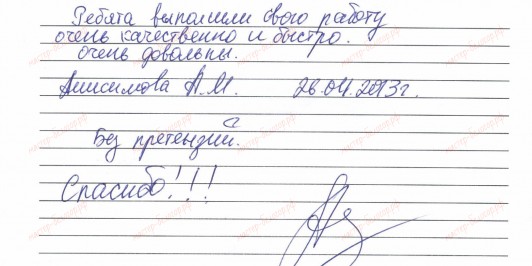 Ребята выполнили свою работу
очень качественно и быстро.
очень довольны.
Анисимова А.М. 26.04.2013г.
Без претензий.
Спасибо!!!